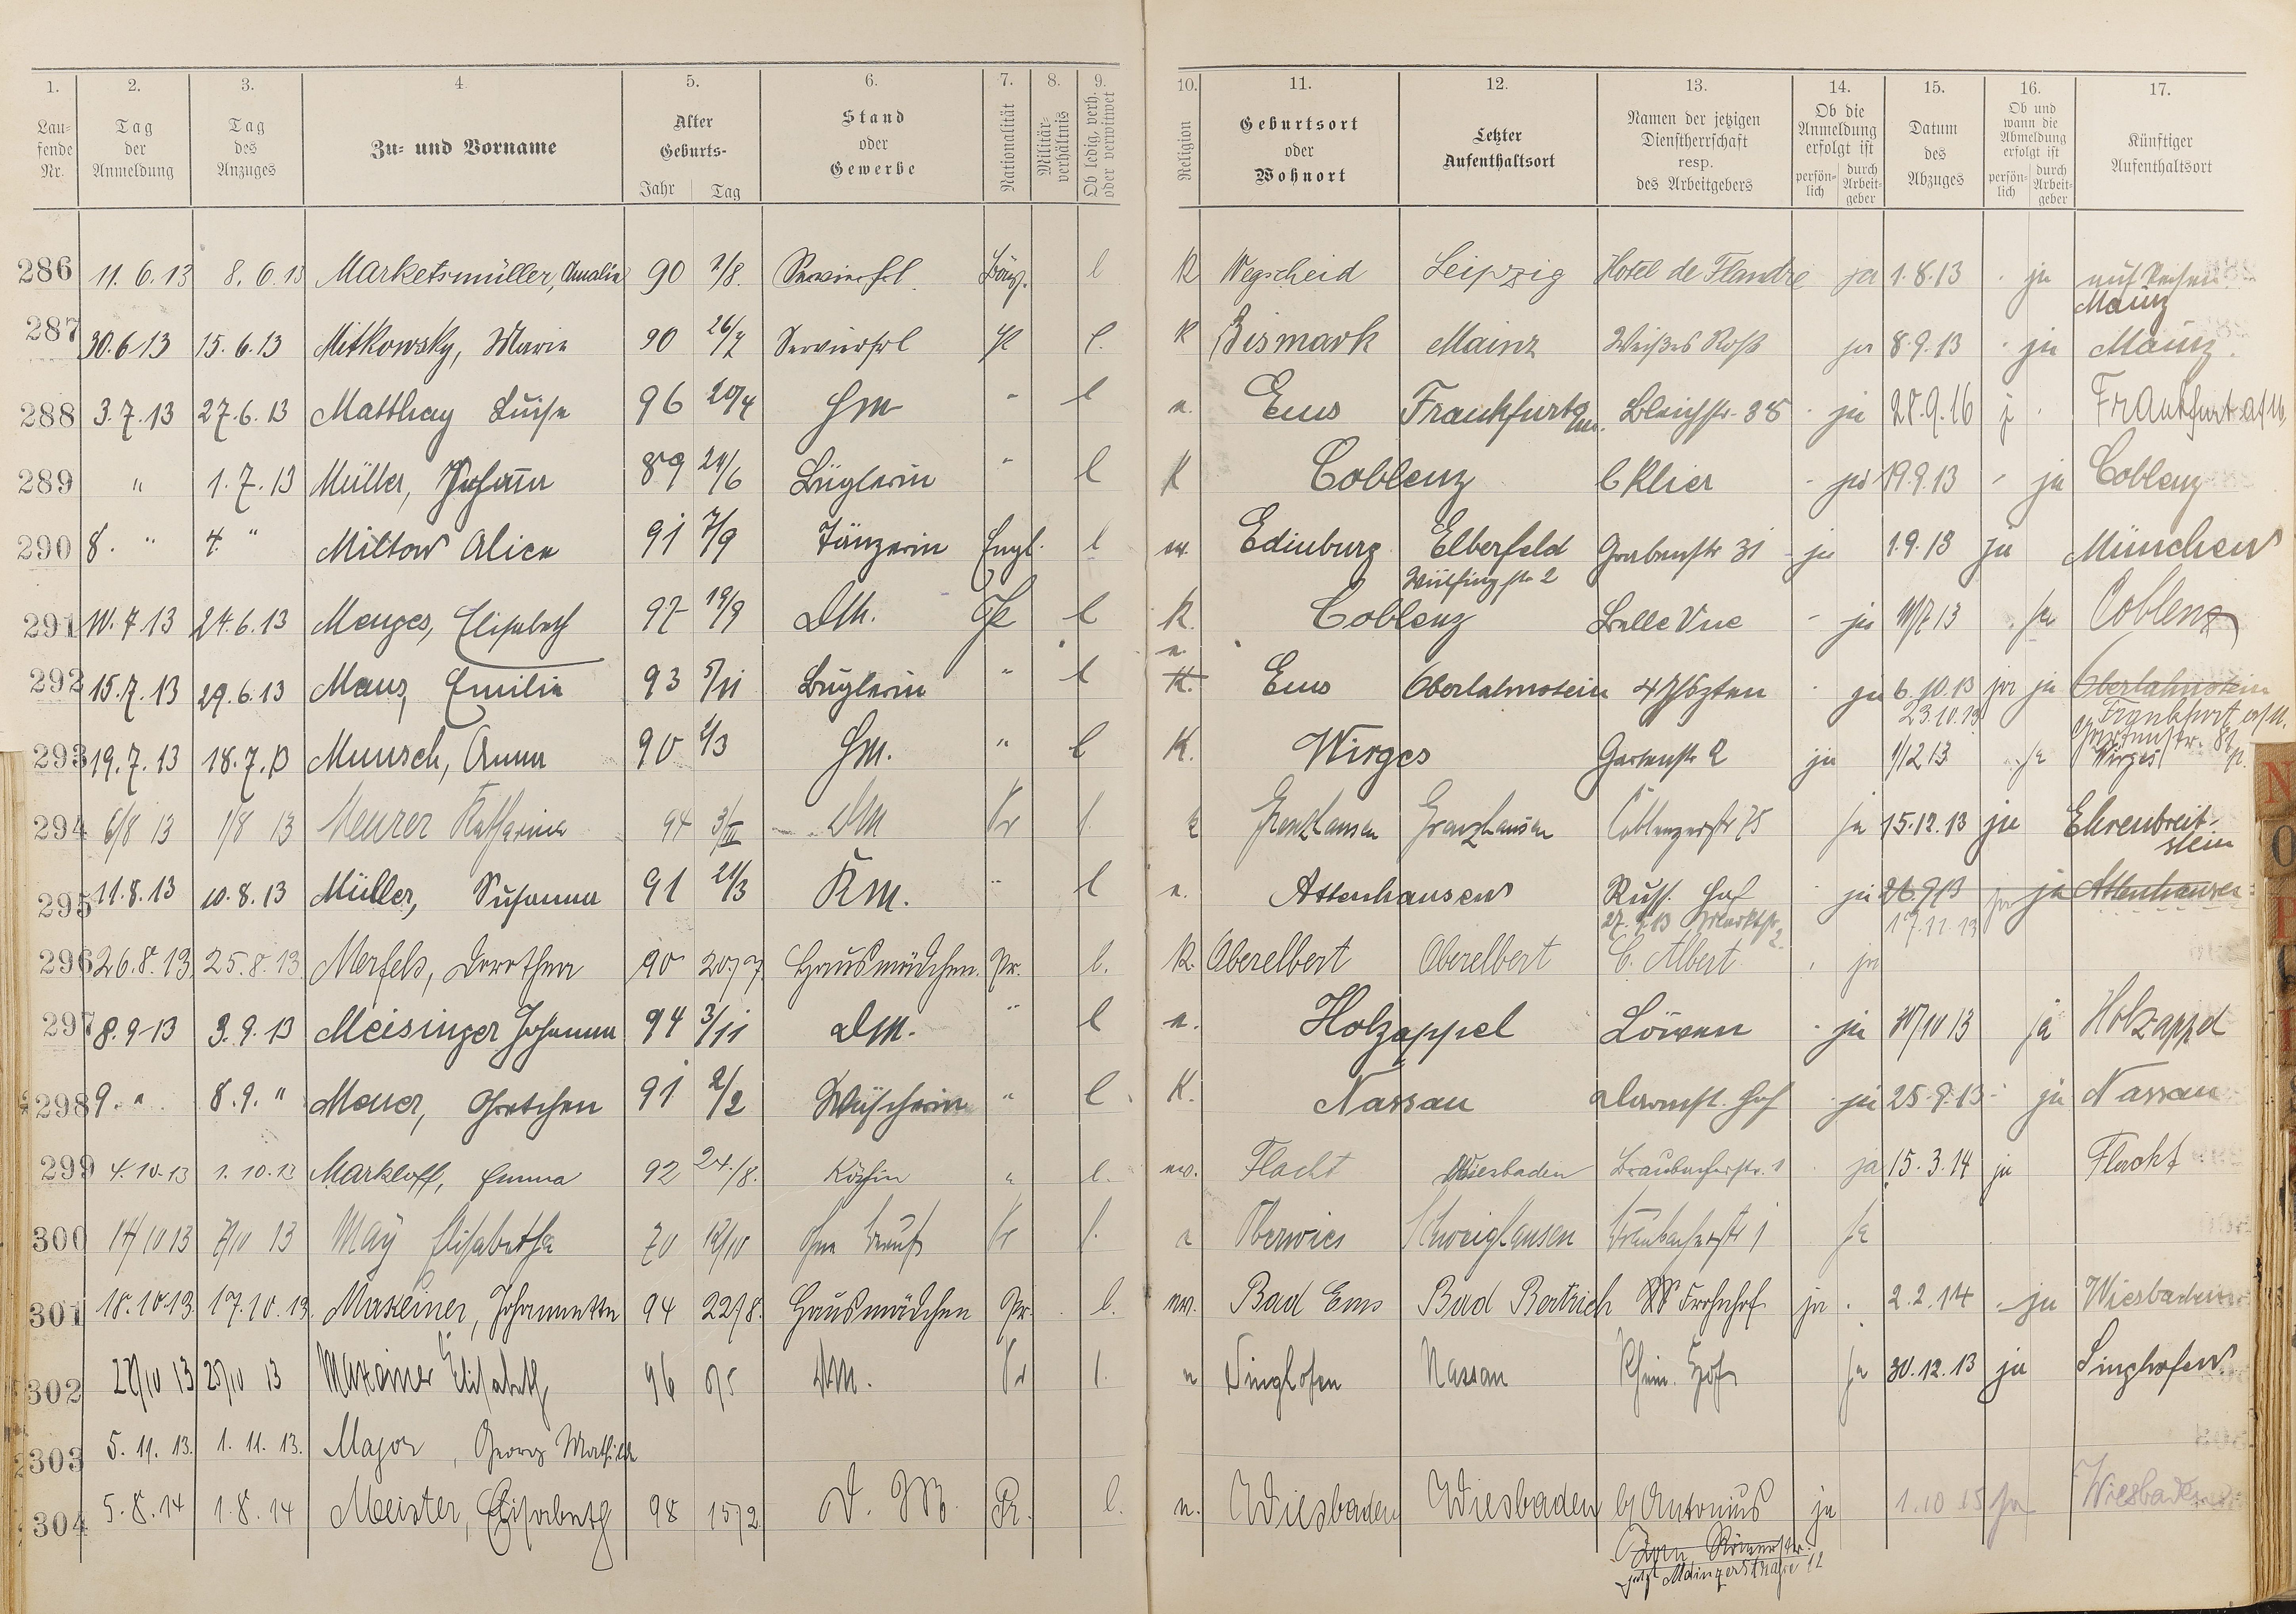 1. 2. 3. 4. 5. 6. 7. 8. 9. 10. 11. 12. 13. 14. 15. 16. 17.
Lau-
fende
Nr.
Tag
der
Anmeldung
Tag
des
Anzuges
Zu- und Vorname
Alter
Geburts-
Jahr Tag
Stand
oder
Gewerbe
Nationalität
Militär-
verhältnis
Ob ledig, verh.
oder verwitwet
Religion
Geburtsort
oder
Wohnort
Letzter
Aufenthaltsort
Namen der jetzigen
Dienstherrschaft
resp.
des Arbeitgebers
Ob die
Anmeldung
erfolgt ist
persön-
lich
durch
Arbeit-
geber
Datum
des
Abzuges
Ob und
wann die
Abmeldung
erfolgt ist
persön-
lich
durch
Arbeit-
geber
Künftiger
Aufenthaltsort
286 11.6.13 8.6.13 Marketsmüller, Amalie 90 2/8. Servierfrl. l K Wegscheid Leipzig Hotel de Flandre ja 1.8.13 ja auf Reisen
Mainz
287 30.6.13 15.6.13 Mitkowsky, Marie 90 26/7 Servierfrl l. K Bismark Mainz Weißes Roß ja 8.9.13 ja Mainz.
288 3.7.13 27.6.13 Matthay Luise 96 20/4 Hm " l Ems Frankfurt a/M. Bleichstr. 38 ja 28.9.16 j Frankfurt a/M.
289 " 1.7.13 Müller, Johanna 89 24/6 Büglerin " l K Coblenz C Klier ja 19.9.13 ja Coblenz
290 8. " 4. " Miltow Alice 91 7/9 Tänzerin Engl. l Edinburg Elberfeld Grabenstr 31 ja 1.9.13 ja München
Wülfingstr 2
291 10.7.13 24.6.13 Menges, Elisabeth 97 19/9 DM. l K. Coblenz Belle Vue ja 10/7 13 ja Coblenz
292 15.7.13 29.6.13 Maus, Emilie 93 5/11 Büglerin " l K. Ems Oberlahnstein 4 Thürme ja 6.10.13 ja ja Oberlahnstein
23.10.13 Frankfurt a/M.
293 19.7.13 18.7.13 Munsch, Anna 90 2/3 Hm. " l K. Wirges Gartenstr 2 ja 1/12 13 ja Wirges
294 6/8 13 1/8 13 Meurer Katharina 94 3/II DM Pr l Grenzhausen Grenzhausen Coblenzerstr 75 ja 15.12.13 ja Ehrenbreit-
stein
295 11.8.13 10.8.13 Müller, Susanna 91 21/3 Km. " l Attenhausen Russ. Hof ja 26.9.13 ja Attenhausen
27.9.13 Marktstr. 2 17.11.13
296 26.8.13 25.8.13 Merfels, Dorothea 90 20/7 Hausmädchen. Pr. l. K. Oberelbert Oberelbert C. Albert ja
297 8.9.13 3.9.13 Meisinger Johanna 94 3/11 DM. " l Holzappel Löwen ja 10/10 13 ja Holzappel
298 9. " 8.9. " Meuer, Gretchen 91 2/2 Wäscherin " l K. Nassau Darmst. Hof ja 25.9.13 ja Nassau
299 4.10.13 1.10.13 Markloff, Emma 92 24./8. Köchin " l. ev. Flacht Wiesbaden Braubacherstr. 1 ja 15.3.14 ja Flacht
300 14/10 13 7/10 13 May Elisabetha 70 12/10 ohne Beruf Pr l. Oberwies Schweighausen Braubacherstr 1 ja
301 18.10.13. 17.10.13. Maxeiner, Johannette 94 22/8. Hausmädchen Pr. l. ev. Bad Ems Bad Bertrich Frohnhof ja 2.2.14 ja Wiesbaden
302 27/10 13 25/10 13 Maxeiner Elisabeth 96 DM. Pr l. Singhofen Nassau Rhein. Hof ja 30.12.13 ja Singhofen
303 5.11.13. 1.11.13. Major, Georg Mathilde
304 5.8.14 1.8.14 Meister, Elisabeth 98 15/2 D. M. Pr. l. Wiesbaden Wiesbaden b/ Antonius ja 1.10 15 ja Wiesbaden
Römerstr.
jetzt Mainzerstraße 12